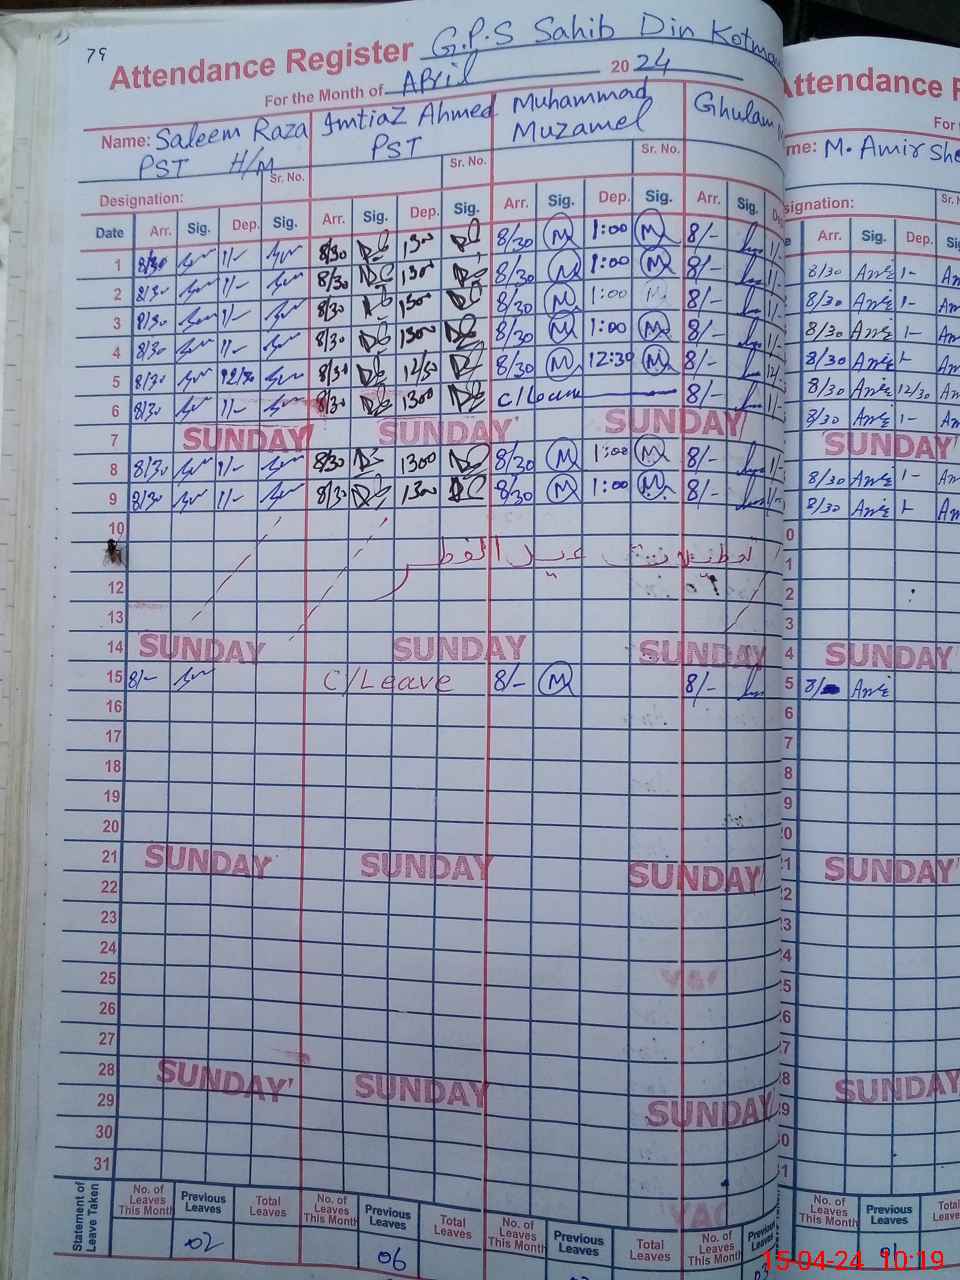 79
Attendance Register G.P.S Sahib Din
For the Month of April 2024
Name: Saleem Raza
PST H/M
Imtiaz Ahmed
PST
Muhammad
Muzamel
Ghulam
Sr. No. Sr. No. Sr. No.
Designation:
Date Arr. Sig. Dep. Sig. Arr. Sig. Dep. Sig. Arr. Sig. Dep. Sig. Arr. Sig.
1 8/30 1/- 8/30 1300 8/30 M 1:00 M 8/-
2 8/30 1/- 8/30 1300 8/30 M 1:00 M 8/-
3 8/30 1/- 8/30 1300 8/30 M 1:00 M 8/-
4 8/30 1/- 8/30 1300 8/30 M 1:00 M 8/-
5 8/30 12/30 8/30 12/30 8/30 M 12:30 M 8/-
6 8/30 1/- 8/30 1300 C/Leave 8/-
7 SUNDAY SUNDAY SUNDAY
8 8/30 1/- 8/30 1300 8/30 M 1:00 M 8/-
9 8/30 1/- 8/30 1300 8/30 M 1:00 M 8/-
10
عید الفطر
12
13
14 SUNDAY SUNDAY SUNDAY
15 8/- C/Leave 8/- M 8/-
16
17
18
19
20
21 SUNDAY SUNDAY SUNDAY
22
23
24
25
26
27
28 SUNDAY SUNDAY SUNDAY
29
30
31
Statement of Leave Taken
No. of Leaves This Month Previous Leaves Total Leaves No. of Leaves This Month Previous Leaves Total Leaves No. of Leaves This Month Previous Leaves Total Leaves No. of Leaves This Month
02 06
Attendance
M. Amir
Arr. Sig. Dep.
8/30 1-
8/30 1-
8/30 1-
8/30 1-
8/30 12/30
8/30 1-
SUNDAY
8/30 1-
8/30 1-
SUNDAY
8/-
SUNDAY
SUNDAY
No. of Leaves This Month Previous Leaves
01
15-04-24 10:19